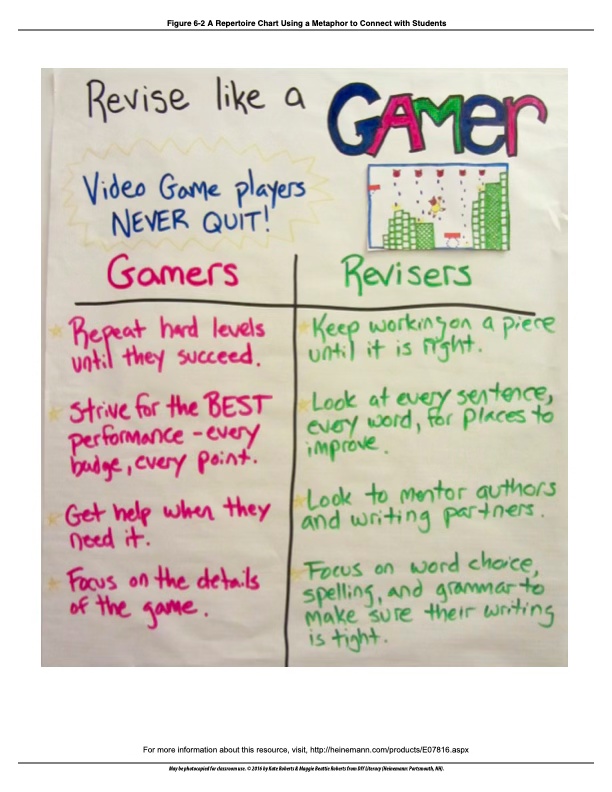 Figure 6-2 A Repertoire Chart Using a Metaphor to Connect with Students
Revise like a GAMER
Video Game players
NEVER QUIT!
Gamers
Repeat hard levels
until they succeed.
Strive for the BEST
performance - every
badge, every point.
Get help when they
need it.
Focus on the details
of the game.
Revisers
Keep working on a piece
until it is right.
Look at every sentence,
every word, for places to
improve.
Look to mentor authors
and writing partners.
Focus on word choice,
spelling, and grammar to
make sure their writing
is tight.
For more information about this resource, visit, http://heinemann.com/products/E07816.aspx
May be photocopied for classroom use. © 2016 by Kate Roberts & Maggie Beattie Roberts from DIY Literacy (Heinemann: Portsmouth, NH).